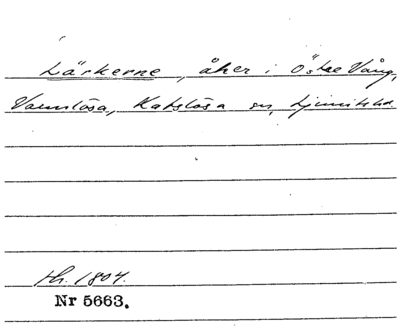 Lärkerne, åker i Östre Vång,
Vannlösa, Katslösa sn, Ljunits hd.
Hr. 1804.
Nr 5663.